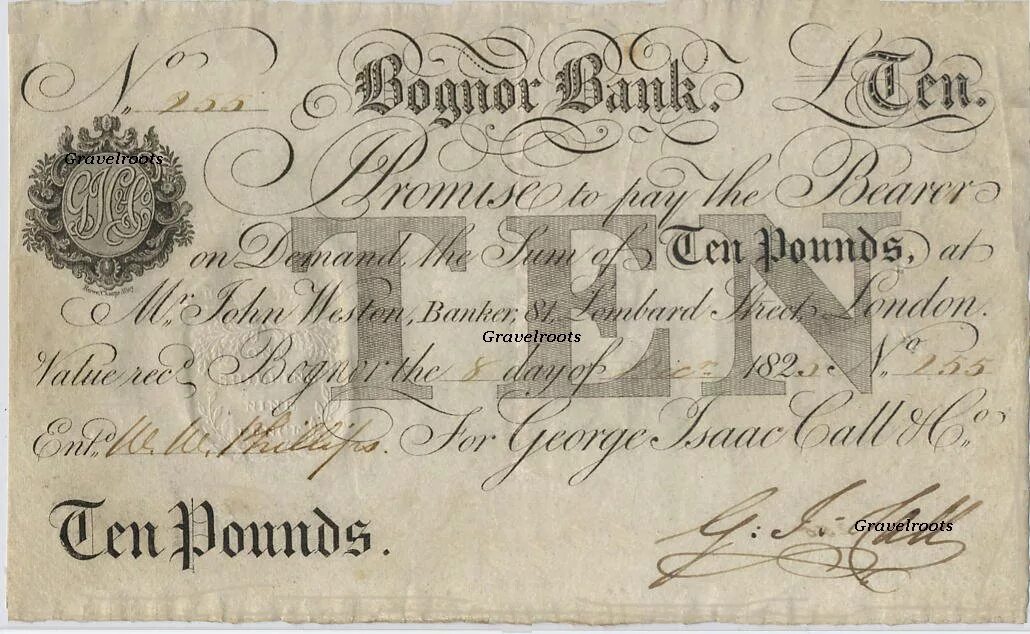 No. 255 Bognor Bank. £Ten.
Gravelroots
GIC&Co
I Promise to pay the Bearer
on Demand, the Sum of Ten Pounds, at
Mr. John Weston, Banker, 81, Lombard Street, London.
Gravelroots
Value recd. Bognor the 8 day of Decr 1825 No. 255
TEN
Entd. W. W. Phillips. For George Isaac Call & Co.
Ten Pounds.
G: I: Call
Gravelroots